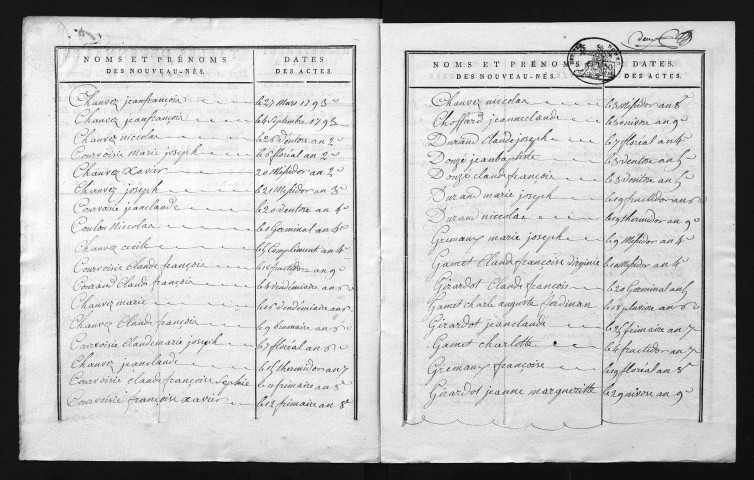 NOMS ET PRÉNOMS DES NOUVEAU-NÉS. DATES DES ACTES.
Chauvez jeanfrancois le 27 Mars 1793
Chauvez jeanfrancois le 4 Septembre 1793
Chauvez niccolas le 26 Ventose an 2e
Courvoisie marie joseph le 6 floréal an 2e
Chauvez Xavier 20 Messidor an 2e
Chauvez joseph le 21 Messidor an 3e
Courvoisie jeanclaude le 20 ventose an 4e
Coulon Niccolas le 1 Germinal an 4e
Chauvez cecile le 5 Compliment an 4e
Courvoisie Claude françois le 18 fructidor an 9e
Courand Claude françois le 4 vendémiaire an 6e
Chauvez marie le 18 vendémiaire an 6e
Chauvez Claude françois le 9 brumaire an 6e
Courvoisie Claudemarie joseph le 7 floréal an 6e
Chauvez jeanclaude le 15 thermidor an 7
Courvoisie claude françoise Sophie le 11 frimaire an 8e
Courvoisie françoise xavier le 12 frimaire an 8e
deux
NOMS ET PRÉNOMS DES NOUVEAU-NÉS. DATES. DES ACTES.
Chauvez niccolas le 3 Messidor an 8e
Choffard jeanneclaude le 30 nivose an 9e
Durand Claudejoseph le 7 floréal an 4e
Donzé jeanbaptiste le 3 ventose an 5e
Donzé claude françois le 8 ventose an 5e
Durand marie joseph le 19 fructidor an 6e
Durand niccolas le 19 thermidor an 9e
Gremaux marie joseph le 9 Messidor an 4e
Gamet Claud françoise Virginie le 10 Messidor an 4e
Girardot Claude françois le 20 Germinal an 5
Gamet charle auguste ferdinan le 18 pluviose an 6e
Girardot jeanclaude le 25 frimaire an 7
Gamet charlotte le 4 fructidor an 7
Gremaux françoise le 19 floréal an 8e
Girardot jeanne margueritte le 29 nivose an 9e